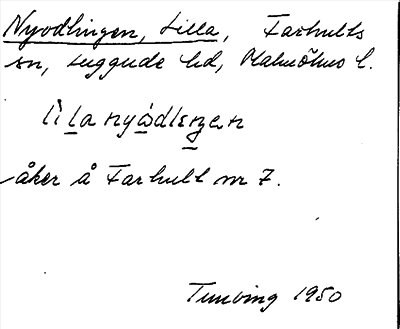 Nyodlingen, Lilla, Farhults
sn, Luggude hd, Malmöhus l.
lìla nyὼdlıŋen
åker å Farhult nr 7.
Tunving 1950